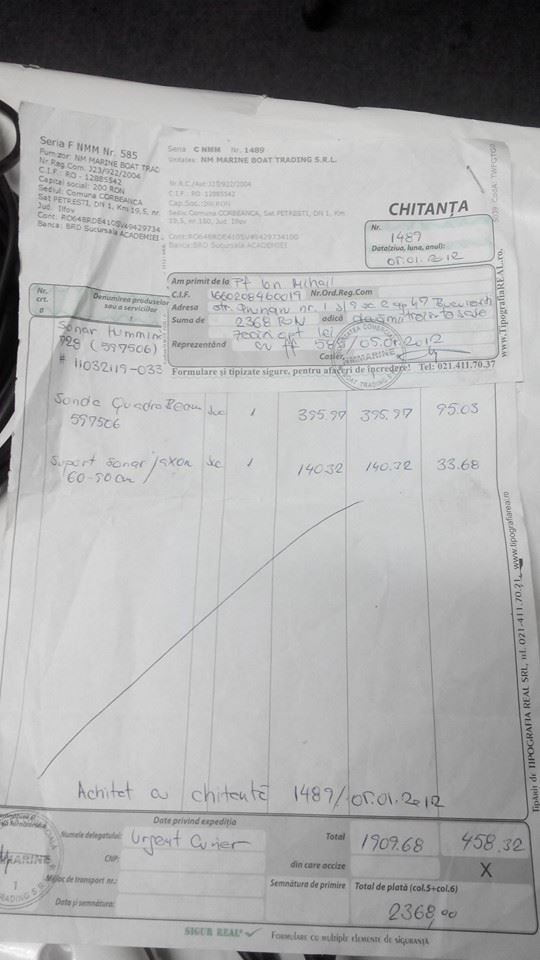 Seria F NMM Nr. 585
Furnizor: NM MARINE BOAT TRAD
Nr.Reg.Com. J23/922/2004
C.I.F. RO - 12885542
Capital social: 200 RON
Sediul: Comuna CORBEANCA,
Sat PETRESTI, DN 1, Km 19,5, nr.
Jud. Ilfov
Banca: BRD Sucursala ACADEMIEI
Seria C NMM Nr. 1489
Unitatea: NM MARINE BOAT TRADING S.R.L.
Nr.R.C./Aut:J23/922/2004
C.I.F. RO - 12885542
Cap.Soc.:200RON
Sediu: Comuna CORBEANCA, Sat PETRESTI, DN 1, Km
19,5, nr 110, Jud. Ilfov
Banca: BRD Sucursala ACADEMIEI
CHITANȚA
Nr.
1489
Data(ziua, luna, anul):
05.01.2012
Am primit de la Pf Ion Mihail
C.I.F. 1660208460019 Nr.Ord.Reg.Com
Adresa str. nr. 1 ap 47 Bucuresti
Suma de 2368 RON adică
lei
Reprezentând cv ff 585/05.01.2012
Casier,
Formulare și tipizate sigure, pentru afaceri de încredere! Tel: 021.411.70.37
www.TipografiaREAL.ro
Nr. crt.
Denumirea produselor
sau a serviciilor
0
1
Sonar Hummin
728 (597506)
# 11032119-033
Sonda QuadraBeam buc 1 395.97 395.97 95.03
597506
Suport Sonar Jaxon buc 1 140.32 140.32 33.68
60-90cm
Achitat cu chitanta 1489/05.01.2012
Data privind expediția
Numele delegatului: Urgent Curier
CNP:
Mijloc de transport nr.:
Data și semnătura:
Total 1909.68 458.32
din care accize X
Semnătura de primire
Total de plată (col.5+col.6)
2368,00
SIGUR REAL
FORMULARE CU MULTIPLE ELEMENTE DE SIGURANȚĂ
Tipărit de TIPOGRAFIA REAL SRL, tel. 021-411.70.21, www.tipografiareal.ro